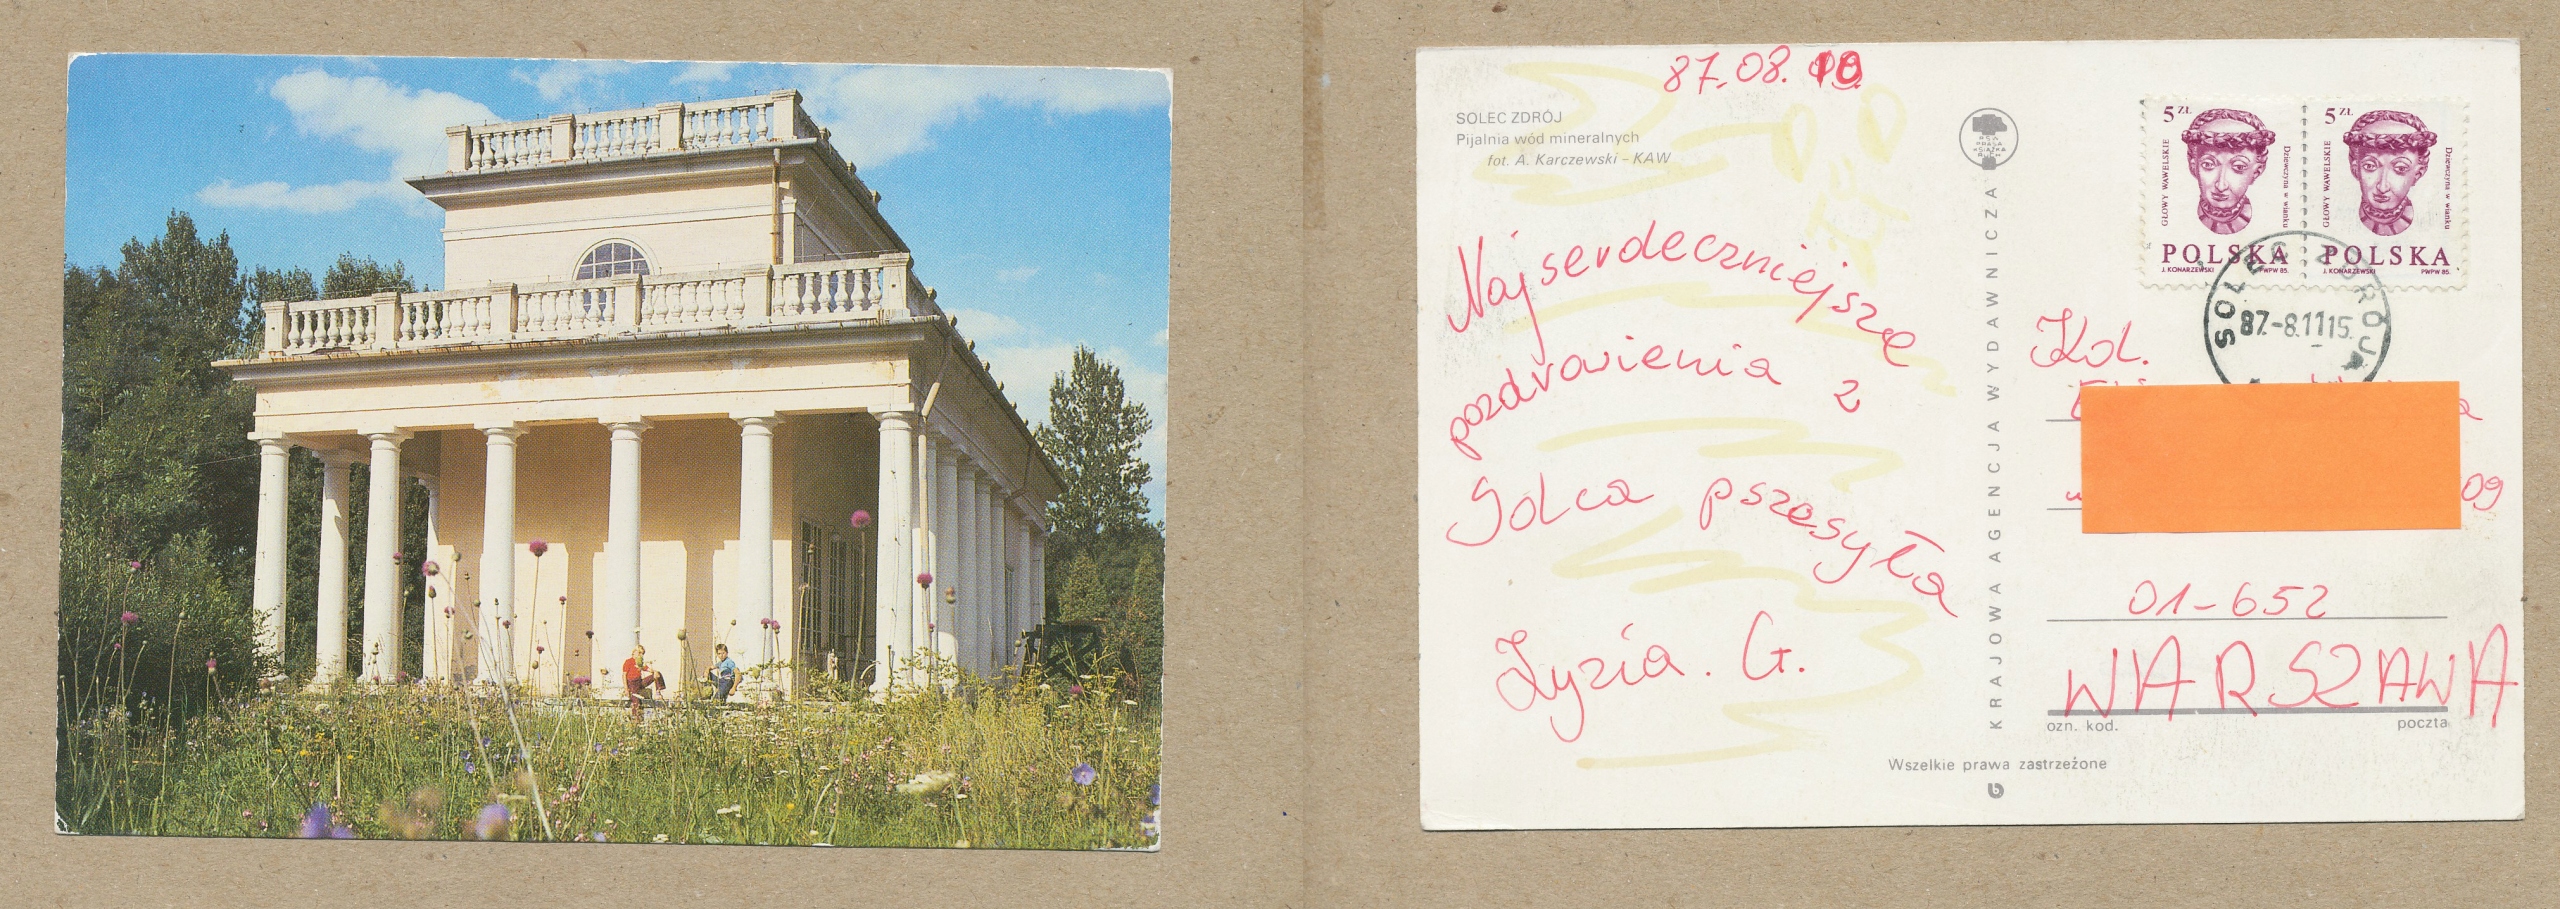 87.08.10
SOLEC ZDRÓJ
Pijalnia wód mineralnych
fot. A. Karczewski – KAW
Najserdeczniejsze
pozdrowienia z
Solca pszesyła
Zyzia. G.
RSW
PRASA
KSIĄŻKA
RUCH
KRAJOWA AGENCJA WYDAWNICZA
5 ZŁ
GŁOWY WAWELSKIE
Dziewczyna w wianku
POLSKA
J. KONARZEWSKI PWPW 85.
5 ZŁ
GŁOWY WAWELSKIE
Dziewczyna w wianku
POLSKA
J. KONARZEWSKI PWPW 85.
SOLEC ZDRÓJ
87.-8.11 15
Kol.
09
01-652
WARSZAWA
ozn. kod. poczta
Wszelkie prawa zastrzeżone